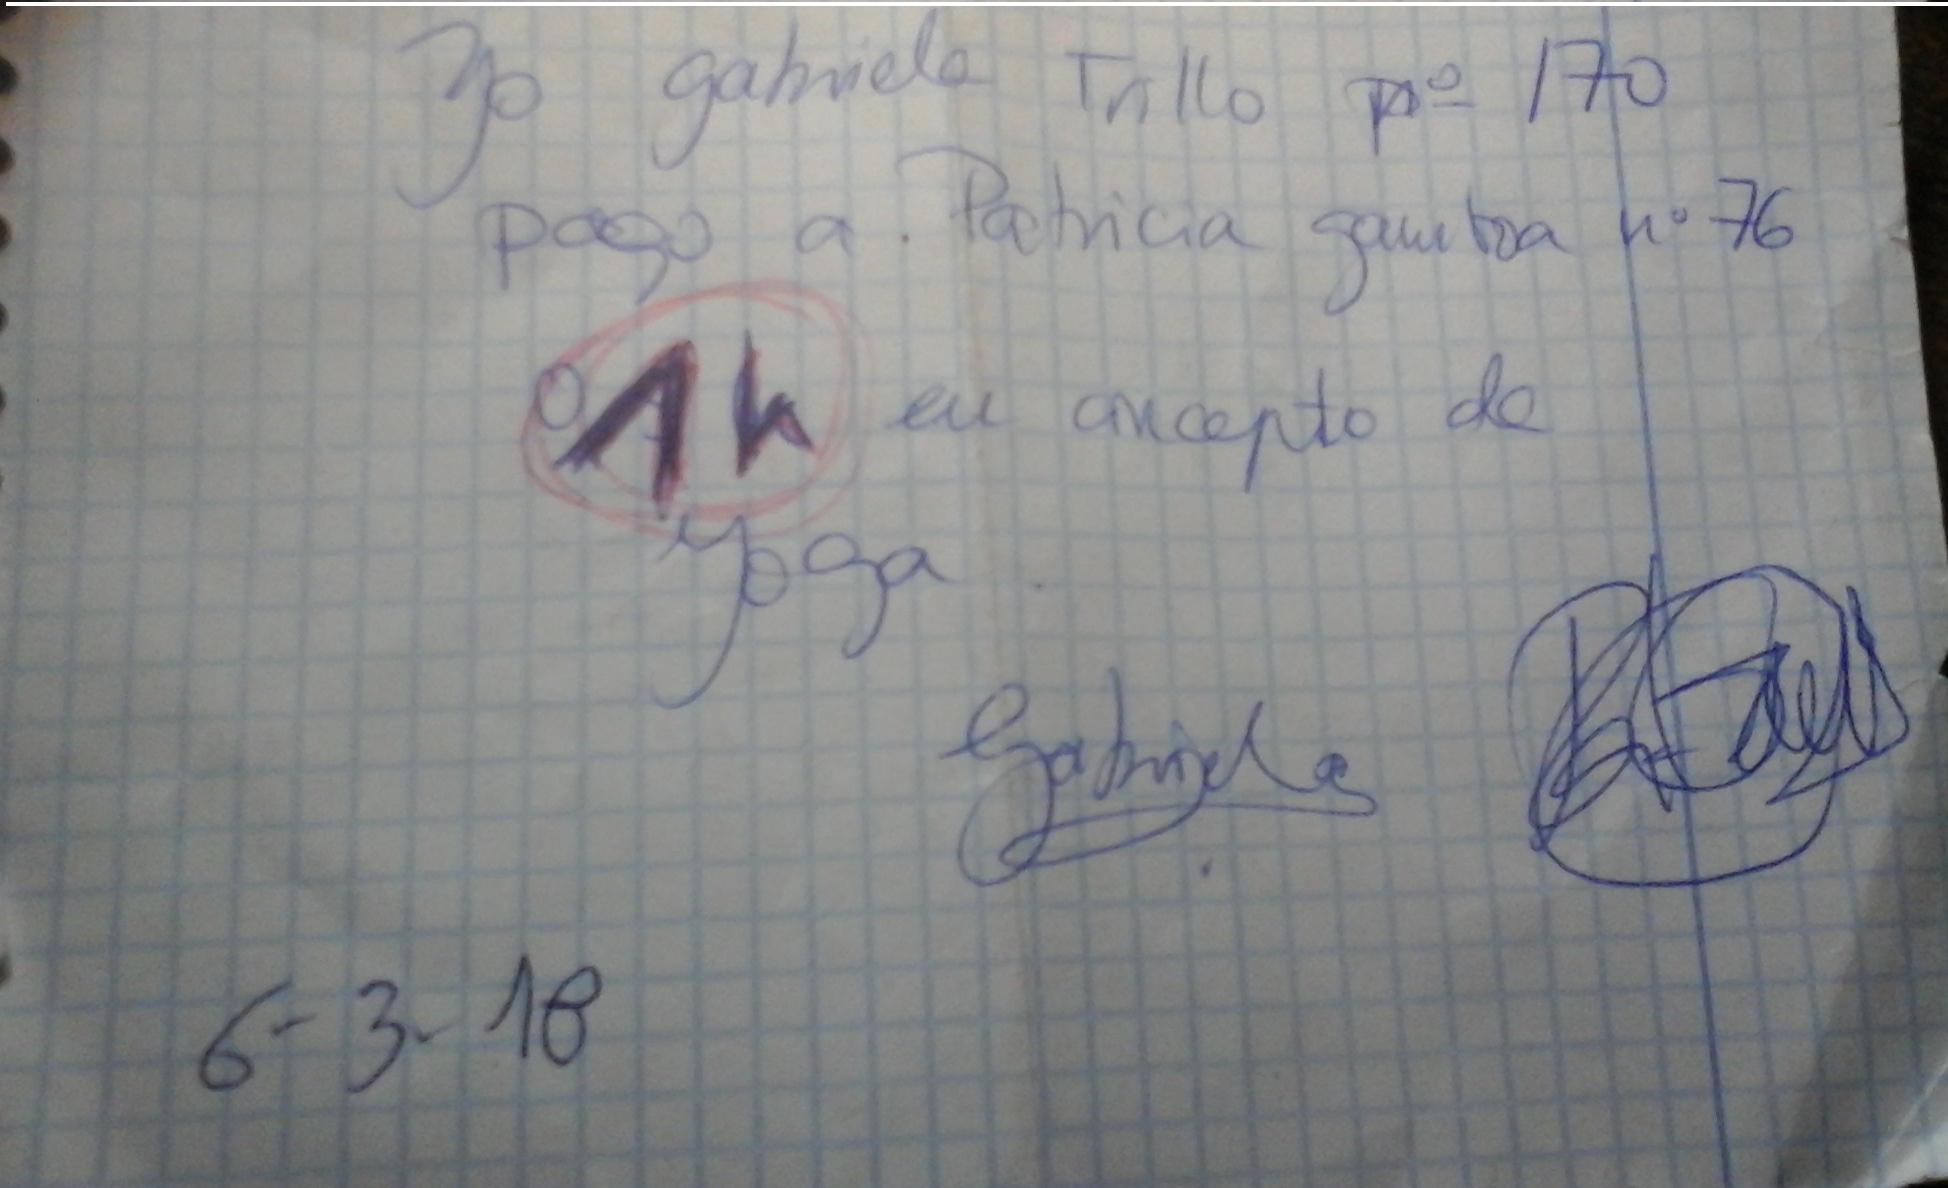 Yo gabriela Trillo nº 170
pago a Patricia gamboa nº 76
1h en concepto de
yoga
Gabriela
6-3-18